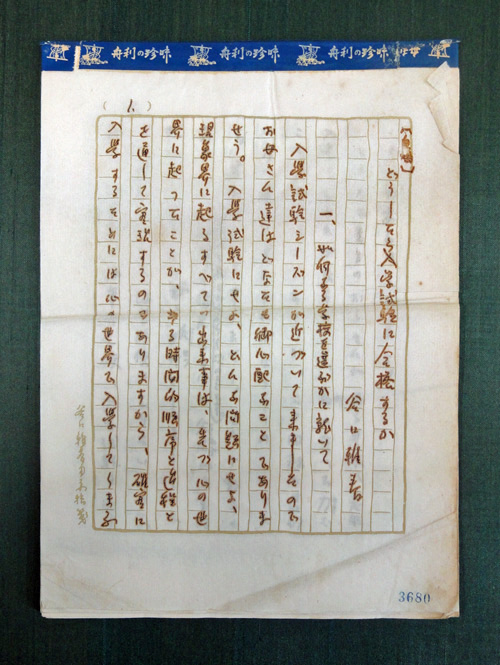 舟利の珍味 舟利の珍味 舟利の珍味
(1)
どうしたら入学試験に合格するか
谷口雅春
一、如何なる学校を選ぶかに就いて
入學試験シーズンが近づいて来ましたので
お母さん達はどなたも御心配なことでありま
せう。入學試験にせよ、どんな問題にせよ、
現象界に起るすべての出来事は、先づ心の世
界に起つたことが、或る時間的順序と過程と
を通して實現するのでありますから、確實に
入學するためには心の世界で入學してしまふ
3680